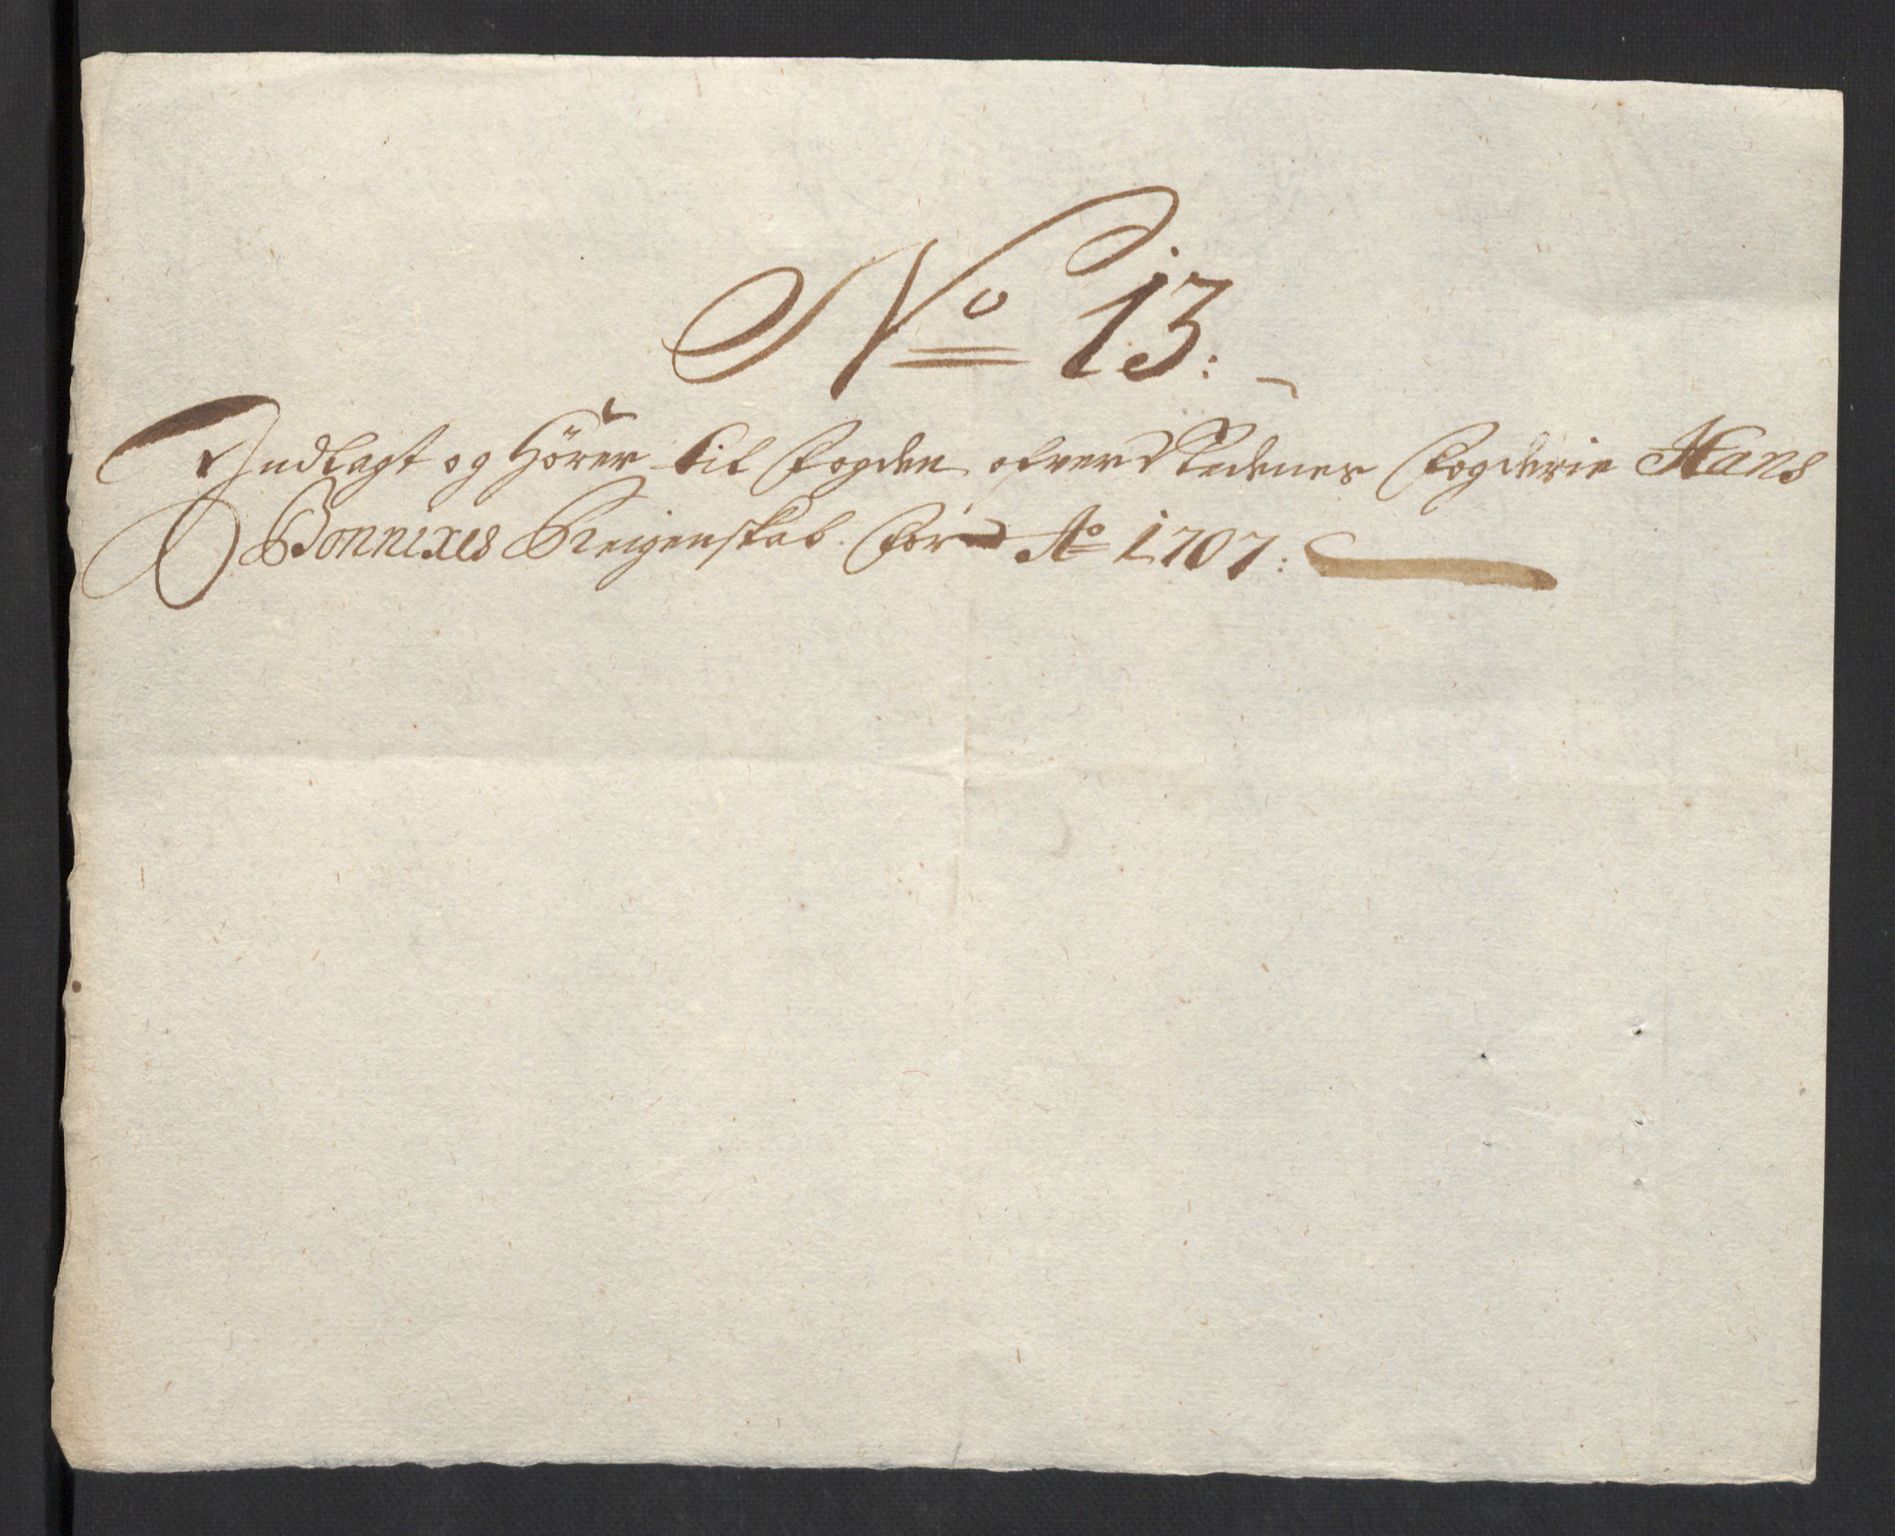 No 13:
Indlagt og Hörer til Fogden ofver Nedenes Fogderie Hans
Bonnixes Reigenskab for Ao 1707: